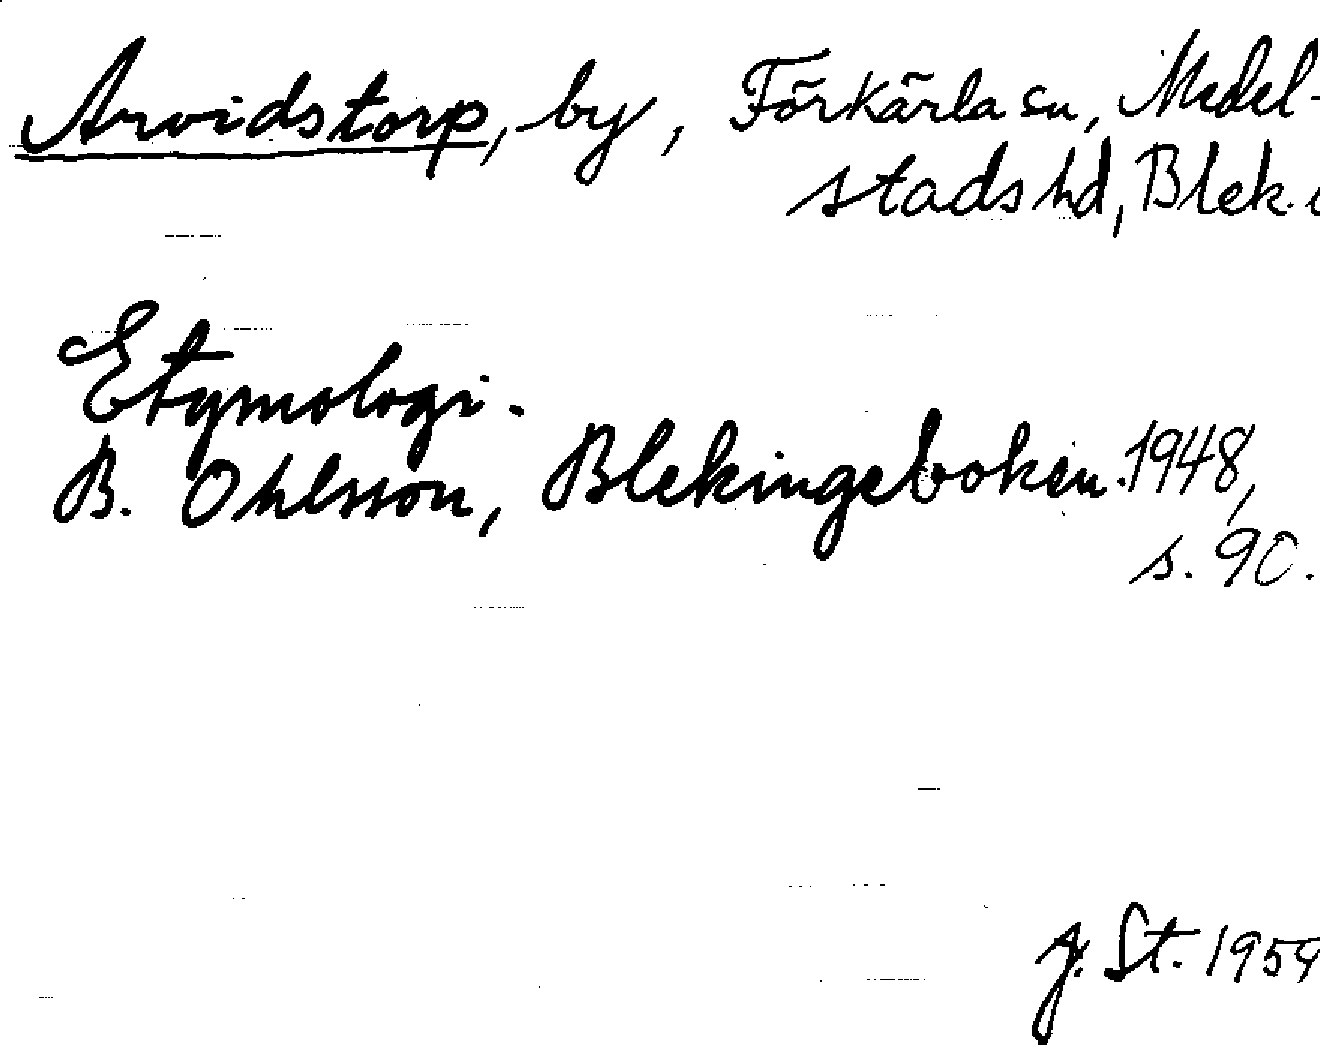 Arvidstorp, by, Förkärla sn, Medel-
stads hd, Blek.
Etymologi.
B. Ohlsson, Blekingeboken 1948,
s. 90.
J. St. 1959